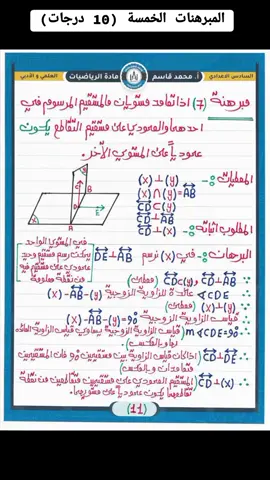 المبرهنات الخمسة (10 درجات)
السادس الاعدادي
أ. محمد قاسم
مادة الرياضيات
العلمي و الأدبي
مبرهنة (7) اذا تعامد مستويان فالمستقيم المرسوم في
احدهما والعمودي على مستقيم التقاطع يكون
عمودياً على المستوي الآخر.
المعطيات :-
(X) ⊥ (Y)
(X) ∩ (Y) = AB
CD ⊂ (Y)
CD ⊥ AB
المطلوب اثباته :- CD ⊥ (X)
البرهان :- في (X) نرسم DE ⊥ AB
في المستوي الواحد
يمكن رسم مستقيم وحيد
عمودي على مستقيم فيه
من نقطة معلومة
∵ CD ⊂ (Y) , CD ⊥ AB (معطى)
∴ ∢CDE عائدة للزاوية الزوجية (X) - AB - (Y)
∵ (X) ⊥ (Y) (معطى)
∴ قياس الزاوية الزوجية (X) - AB - (Y) = 90°
∴ m∢CDE = 90° (قياس الزاوية الزوجية يساوي قياس الزاوية العائدة
لها وبالعكس)
∴ CD ⊥ DE (اذا كان قياس الزاوية بين مستقيمين 90° فان المستقيمين
متعامدان وبالعكس)
∴ CD ⊥ (X) (المستقيم العمودي على مستقيمين متقاطعين من نقطة
تقاطعهما يكون عمودياً على مستويهما)
(11)